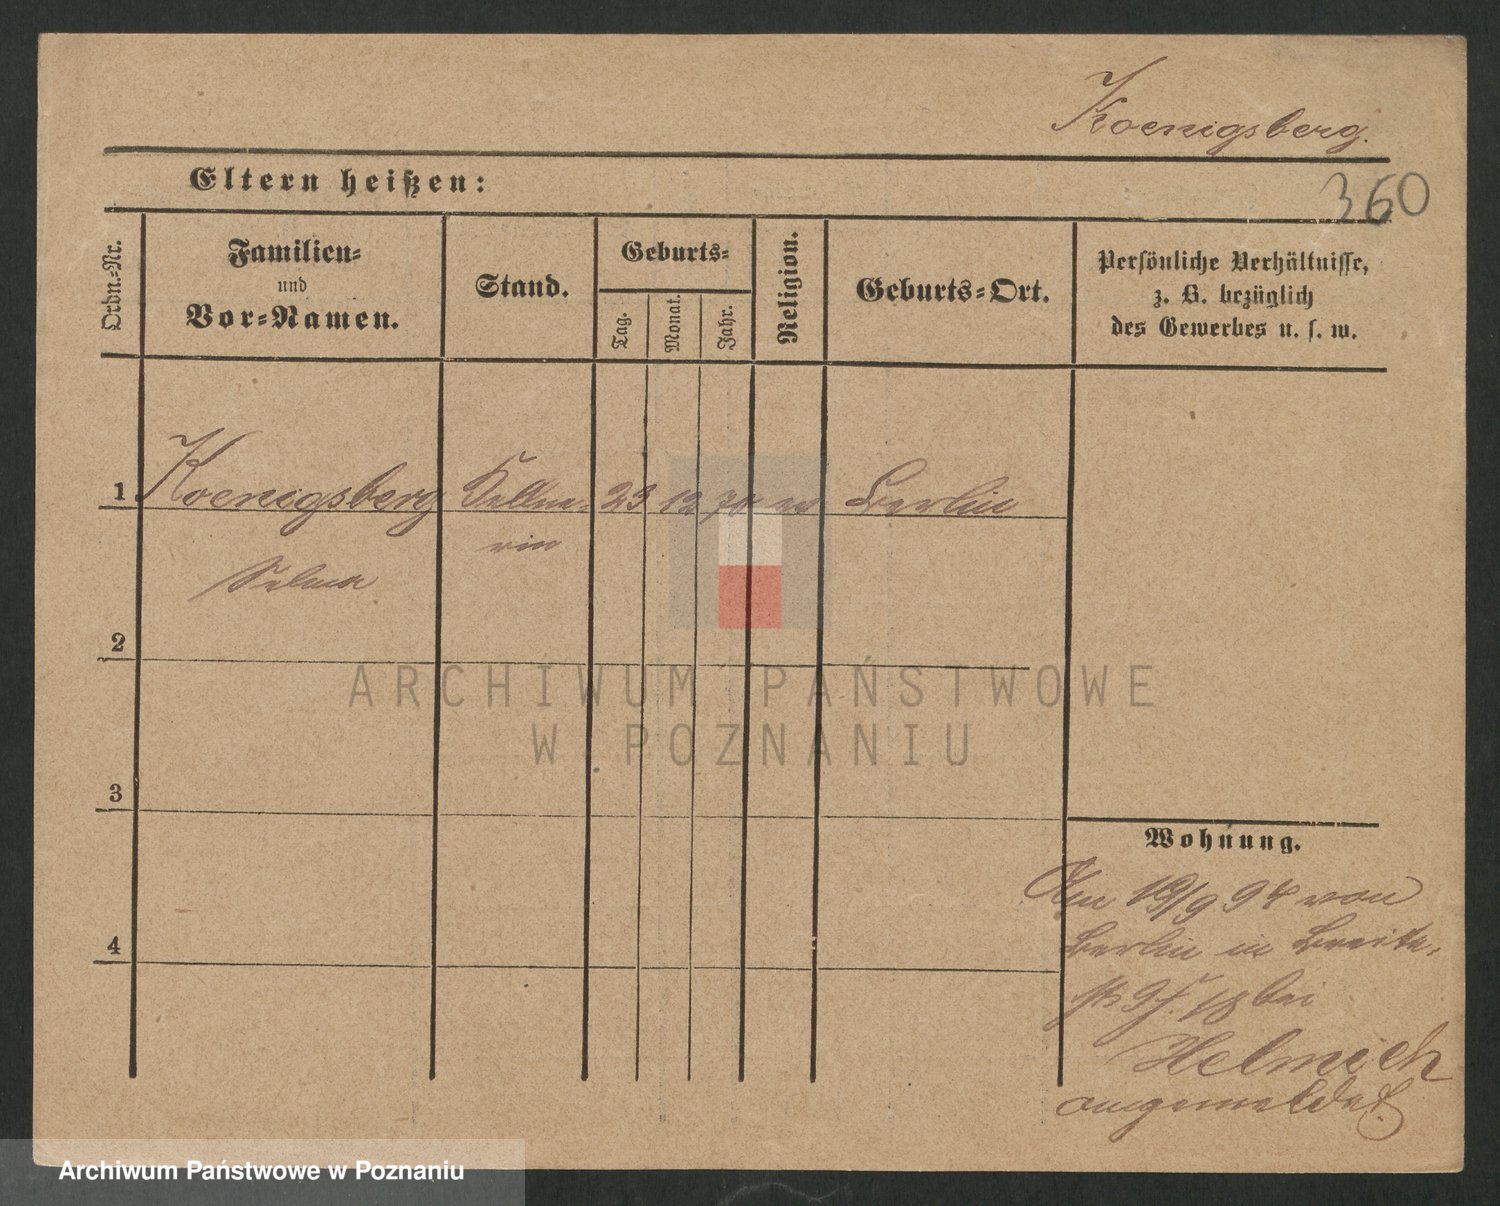 Koenigsberg.
360
Eltern heißen:
Ordn.-Nr.
Familien-
und
Vor-Namen.
Stand.
Geburts-
Tag.
Monat.
Jahr.
Religion.
Geburts-Ort.
Persönliche Verhältnisse,
z. B. bezüglich
des Gewerbes u. s. w.
1
Koenigsberg
Kellne-
23
12
Berlin
rin
Selma
2
ARCHIWUM PAŃSTWOWE
W POZNANIU
3
Wohnung.
Am 19/9 94 von
4
Berlin in Breite-
str 18 bei
Helmich
angemeldet.
Archiwum Państwowe w Poznaniu